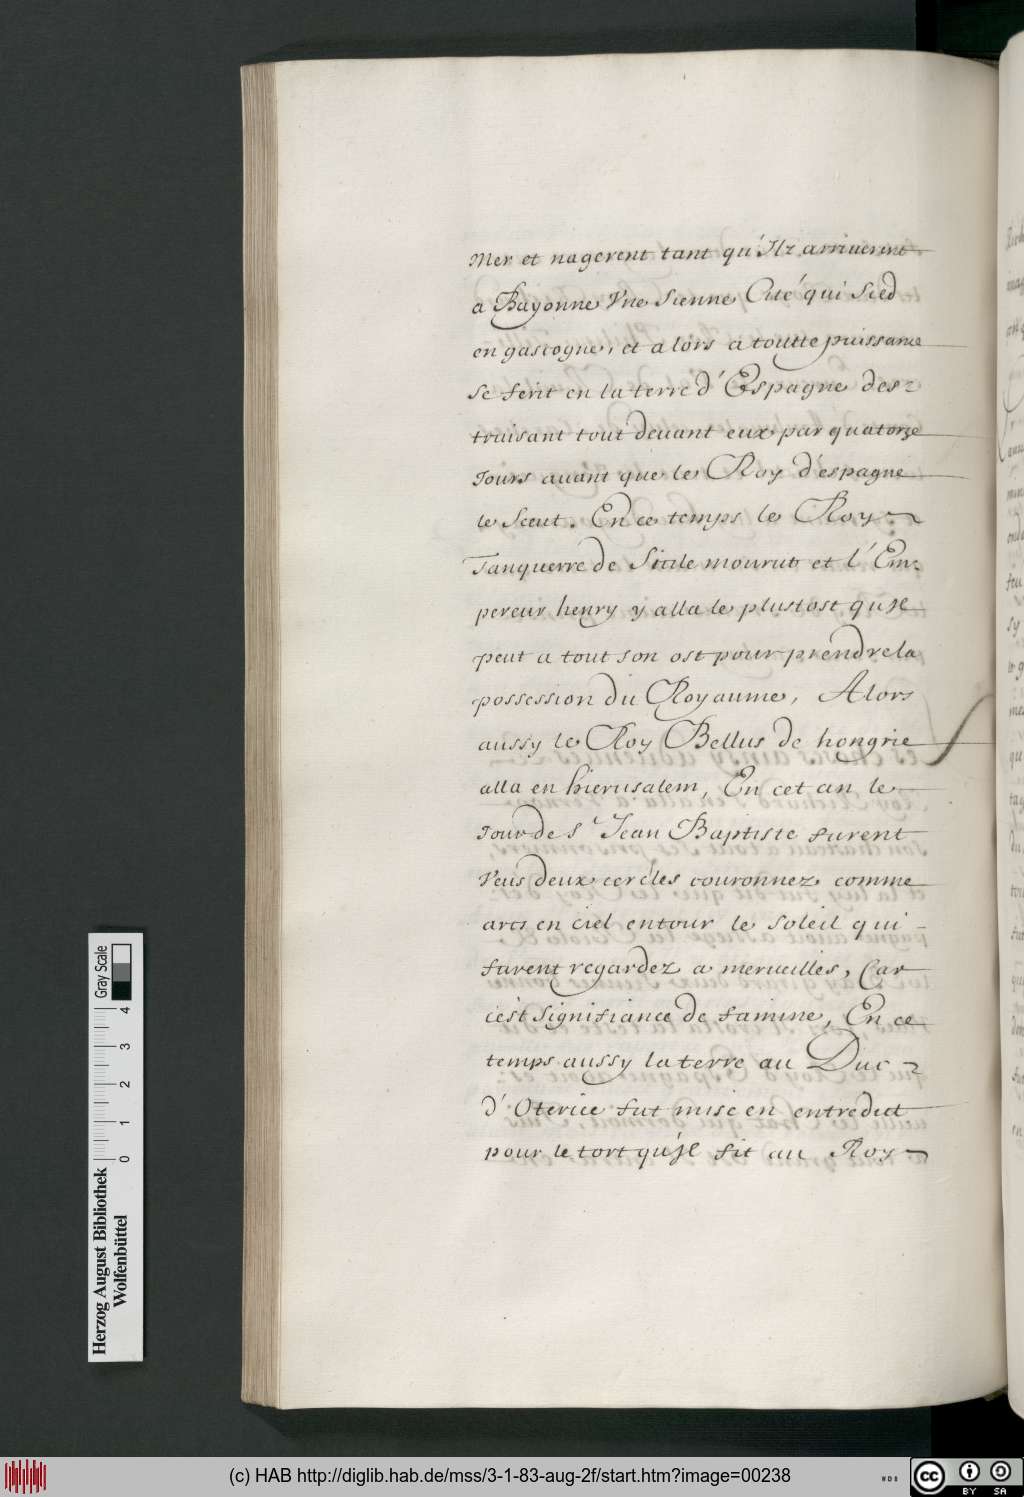 Mer et nagerent tant qu'Ilz arriuerent
a Bayonne Vne sienne Cité qui sied
en gascogne, et alors a toutte puissance
se ferit en la terre d'Espagne des-
truisant tout deuant eux par quatorze
Jours auant que le Roy d'espagne
le sceut. En ce temps le Roy
Tanquerre de Sicile mourut et l'Em-
pereur henry y alla le plustost qu'Jl
peut a tout son ost pour prendre la
possession du Royaume, Alors
aussy le Roy Bellus de hongrie
alla en hierusalem, En cet an le
Jour de St Jean Baptiste furent
Veus deux cercles couronnez comme
arcs en ciel entour le soleil qui
furent regardez a merueilles, Car
c'est signifiance de famine, En ce
temps aussy la terre au Duc
d'Oterice fut mise en entredict
pour le tort qu'Jl fit au Roy
Herzog August Bibliothek
Wolfenbüttel
0 1 2 3 4
Gray Scale
(c) HAB http://diglib.hab.de/mss/3-1-83-aug-2f/start.htm?image=00238
WDB
CC BY SA